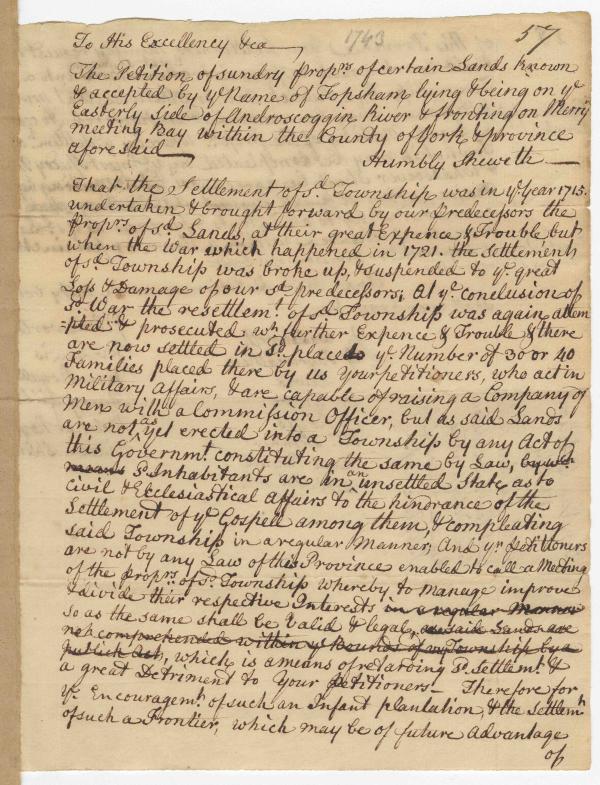 To His Excellency &ca 1743 57
The Petition of sundry Proprs. of certain Lands known
& accepted by ye Name of Topsham lying & being on ye
Easterly Side of Androscoggin River & fronting on Merry
meeting Bay within the County of York & province
aforesaid
Humbly Sheweth
That the Settlement of sd. Township was in ye Year 1715.
undertaken & brought forward by our Predecessors the
Proprs. of sd Lands, at their great Expence & Trouble, but
when the War which happened in 1721. the settlement
of sd. Township was broke up, & suspended to ye great
Loss & Damage of our sd predecessors; At ye conclusion of
sd. War the resettlemt. of sd. Township was again attem
=pted & prosecuted wh. further Expence & Trouble & there
are now settled in sd. place ye Number of 30 or 40
Families placed there by us Your petitioners, who act in
Military Affairs, & are capable of raising a Company of
Men with a Commission Officer, but as said Lands
are not as yet erected into a Township by any Act of
this Governmt. constituting the same by Law, by wch
means sd. Inhabitants are in an unsettled State as to
Civil & Ecclesiastical Affairs to the hindrance of the
Settlement of ye Gospell among them, & compleating
said Township in a regular Manner; And yr. petitioners
are not by any Law of this Province enabled to call a Meeting
of the Proprs. of sd. Township whereby to manage improve
& divide their respective Interests in a regular Manner
so as the same shall be Valid & legal, as said Lands are
not comprehended within ye Bounds of any Township by a
publick Act, which is a means of retarding sd. Settlemt. &
a great Detriment to Your petitioners - Therefore for
ye. Encouragemt. of such an Infant plantation, & the Settlemt.
of such a Frontier, which may be of future advantage
of